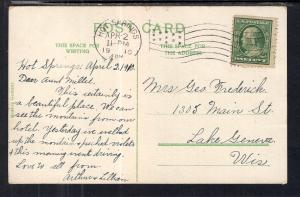 POST CARD
THIS SPACE FOR
WRITING
THIS SPACE FOR
THE ADDRESS
HOT SPRINGS
APR 2
11-PM
19 10
Hot Springs, April 2, 1910
Dear Aunt Millet.
This certainly is
a beautiful place. We can
see the mountains from our
hotel. Yesterday we walked
up the mountain & picked violets
& this morning went driving.
Love to all from
Arthur & Lillian
Mrs Geo Frederick
1305 Main St.
Lake Geneva
Wis.